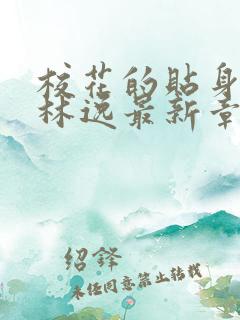 校花的贴身
林逸最新章
绍铎
未任同意禁止转载